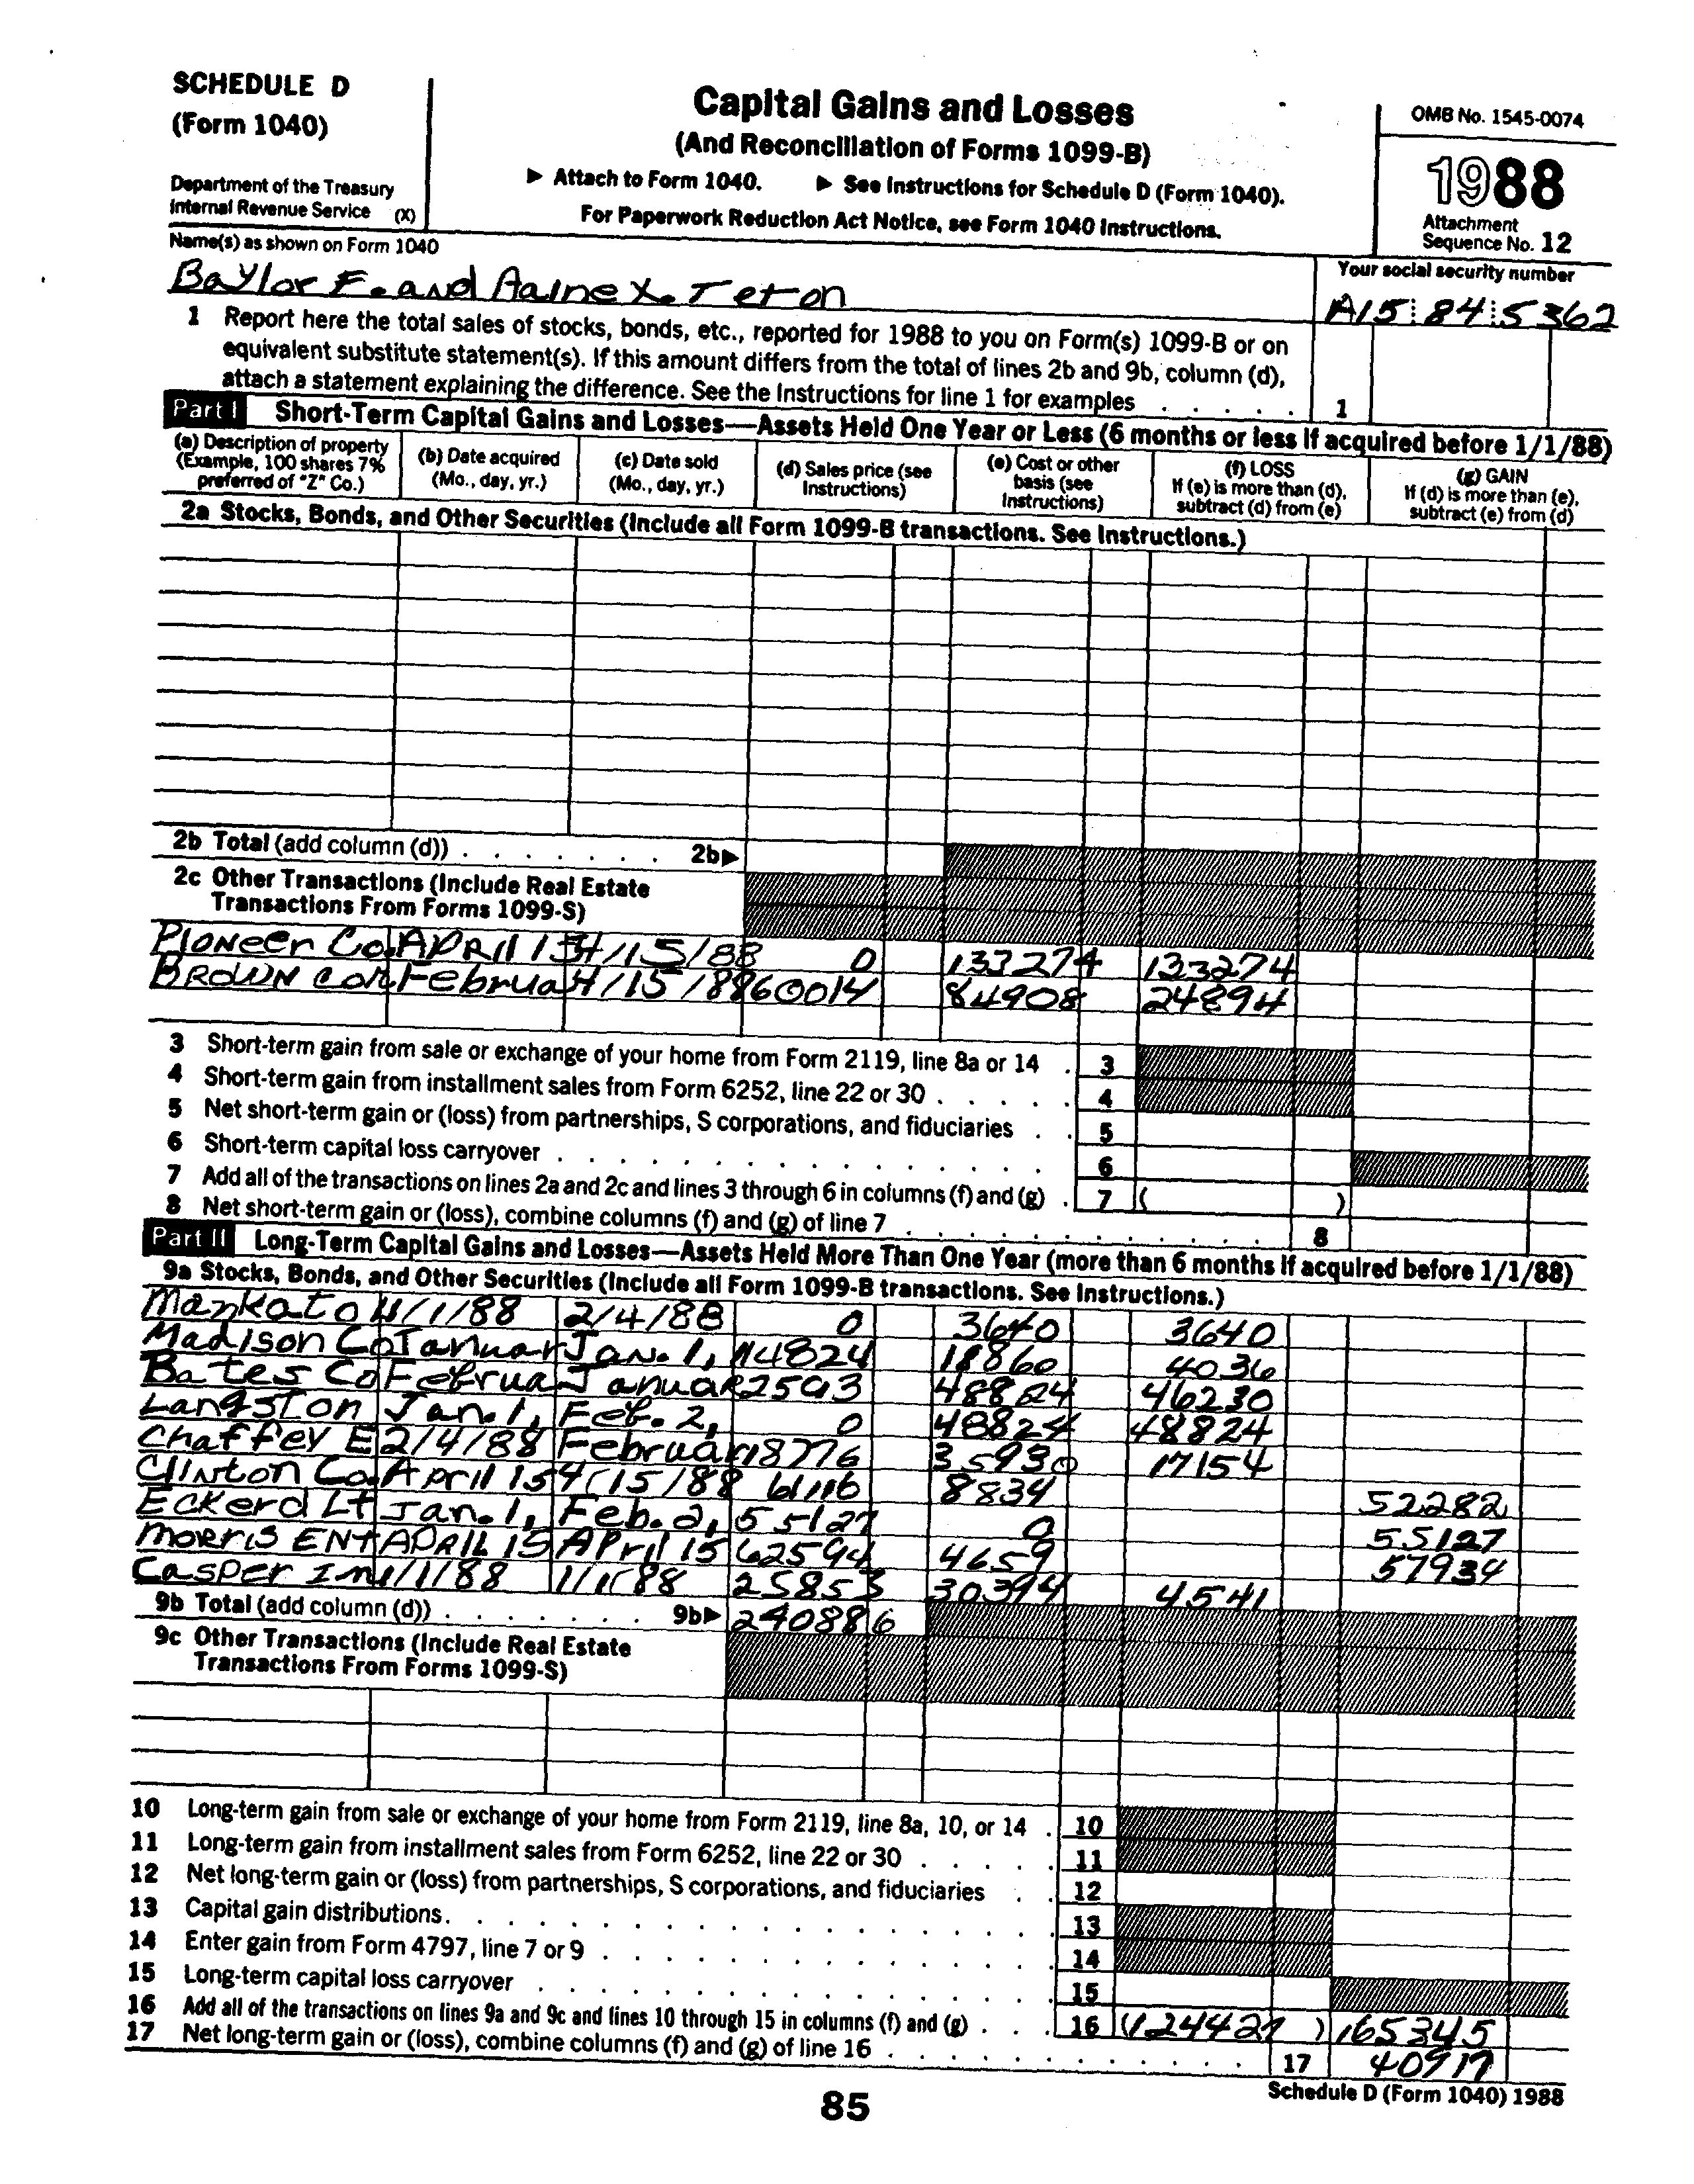 SCHEDULE D
(Form 1040)
Department of the Treasury
Internal Revenue Service (X)
Capital Gains and Losses
(And Reconciliation of Forms 1099-B)
▶ Attach to Form 1040. ▶ See Instructions for Schedule D (Form 1040).
For Paperwork Reduction Act Notice, see Form 1040 Instructions.
OMB No. 1545-0074
1988
Attachment
Sequence No. 12
Name(s) as shown on Form 1040
Baylor F. and Aaine X. Teton
Your social security number
A15 84 5362
1 Report here the total sales of stocks, bonds, etc., reported for 1988 to you on Form(s) 1099-B or on
equivalent substitute statement(s). If this amount differs from the total of lines 2b and 9b, column (d),
attach a statement explaining the difference. See the Instructions for line 1 for examples . . . . . 1
Part I Short-Term Capital Gains and Losses—Assets Held One Year or Less (6 months or less if acquired before 1/1/88)
(a) Description of property
(Example, 100 shares 7%
preferred of "Z" Co.)
(b) Date acquired
(Mo., day, yr.)
(c) Date sold
(Mo., day, yr.)
(d) Sales price (see
Instructions)
(e) Cost or other
basis (see
Instructions)
(f) LOSS
If (e) is more than (d),
subtract (d) from (e)
(g) GAIN
If (d) is more than (e),
subtract (e) from (d)
2a Stocks, Bonds, and Other Securities (Include all Form 1099-B transactions. See Instructions.)
2b Total (add column (d)) . . . . . . . 2b▶
2c Other Transactions (Include Real Estate
Transactions From Forms 1099-S)
Pioneer Co. APRil 15 4/15/88 0 133274 133274
BROWN Cor Februa 4/15/88 60014 84908 24894
3 Short-term gain from sale or exchange of your home from Form 2119, line 8a or 14 . 3
4 Short-term gain from installment sales from Form 6252, line 22 or 30 . . . . . 4
5 Net short-term gain or (loss) from partnerships, S corporations, and fiduciaries . . 5
6 Short-term capital loss carryover . . . . . . . . . . . . . . . 6
7 Add all of the transactions on lines 2a and 2c and lines 3 through 6 in columns (f) and (g) . 7 ( )
8 Net short-term gain or (loss), combine columns (f) and (g) of line 7 . . . . . . . . . . . . 8
Part II Long-Term Capital Gains and Losses—Assets Held More Than One Year (more than 6 months if acquired before 1/1/88)
9a Stocks, Bonds, and Other Securities (Include all Form 1099-B transactions. See Instructions.)
Mankato 1/1/88 2/4/88 0 3640 3640
Madison Co Januar Jan. 1, 14824 18860 4036
Bates Co Februa Januar 2593 48824 46230
Langston Jan. 1, Feb. 2, 0 48824 48824
Chaffey E 2/4/88 Februar 18776 35930 17154
Clinton Co. April 15 4/15/88 61116 8834 52282
Eckerd Lt Jan. 1, Feb. 2, 55127 0 55127
Morris ENT APRIL 15 APril 15 62594 4659 57934
Casper In 1/1/88 1/1/88 25853 30394 4541
9b Total (add column (d)) . . . . . . . 9b▶ 240886
9c Other Transactions (Include Real Estate
Transactions From Forms 1099-S)
10 Long-term gain from sale or exchange of your home from Form 2119, line 8a, 10, or 14 . 10
11 Long-term gain from installment sales from Form 6252, line 22 or 30 . . . . . 11
12 Net long-term gain or (loss) from partnerships, S corporations, and fiduciaries . . 12
13 Capital gain distributions. . . . . . . . . . . . . . . . . . 13
14 Enter gain from Form 4797, line 7 or 9 . . . . . . . . . . . . . 14
15 Long-term capital loss carryover . . . . . . . . . . . . . . . 15
16 Add all of the transactions on lines 9a and 9c and lines 10 through 15 in columns (f) and (g) . . . 16 (124427) 165345
17 Net long-term gain or (loss), combine columns (f) and (g) of line 16 . . . . . . . . . . . . 17 40917
85
Schedule D (Form 1040) 1988